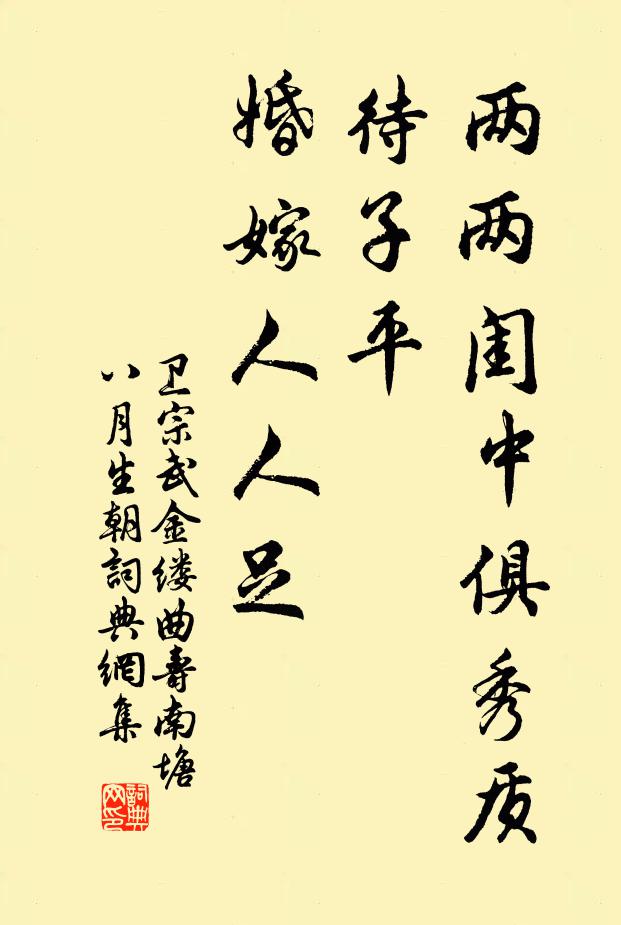 两两闺中俱秀质
待子平
婚嫁人人足
卫宗武金缕曲寿南塘
八月生朝詞典網集
詞典网印